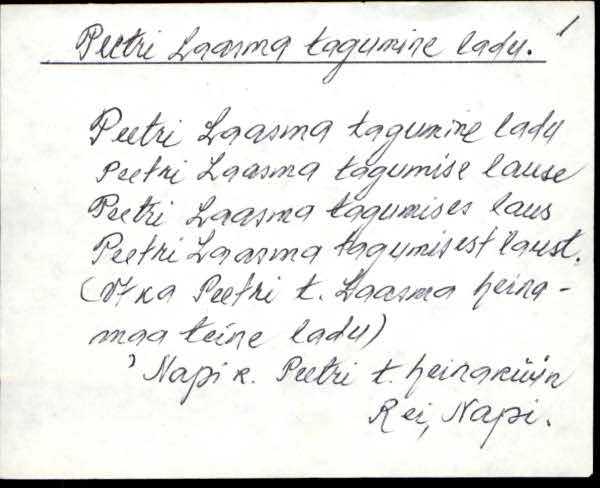 Peetri Laasma tagumine ladu. 1
Peetri Laasma tagumine ladu
Peetri Laasma tagumise lause
Peetri Laasma tagumises laus
Peetri Laasma tagumisest laust.
(Vt ka Peetri t. Laasma heina-
maa teine ladu)
Napi k. Peetri t. heinaküün
Rei, Napi.